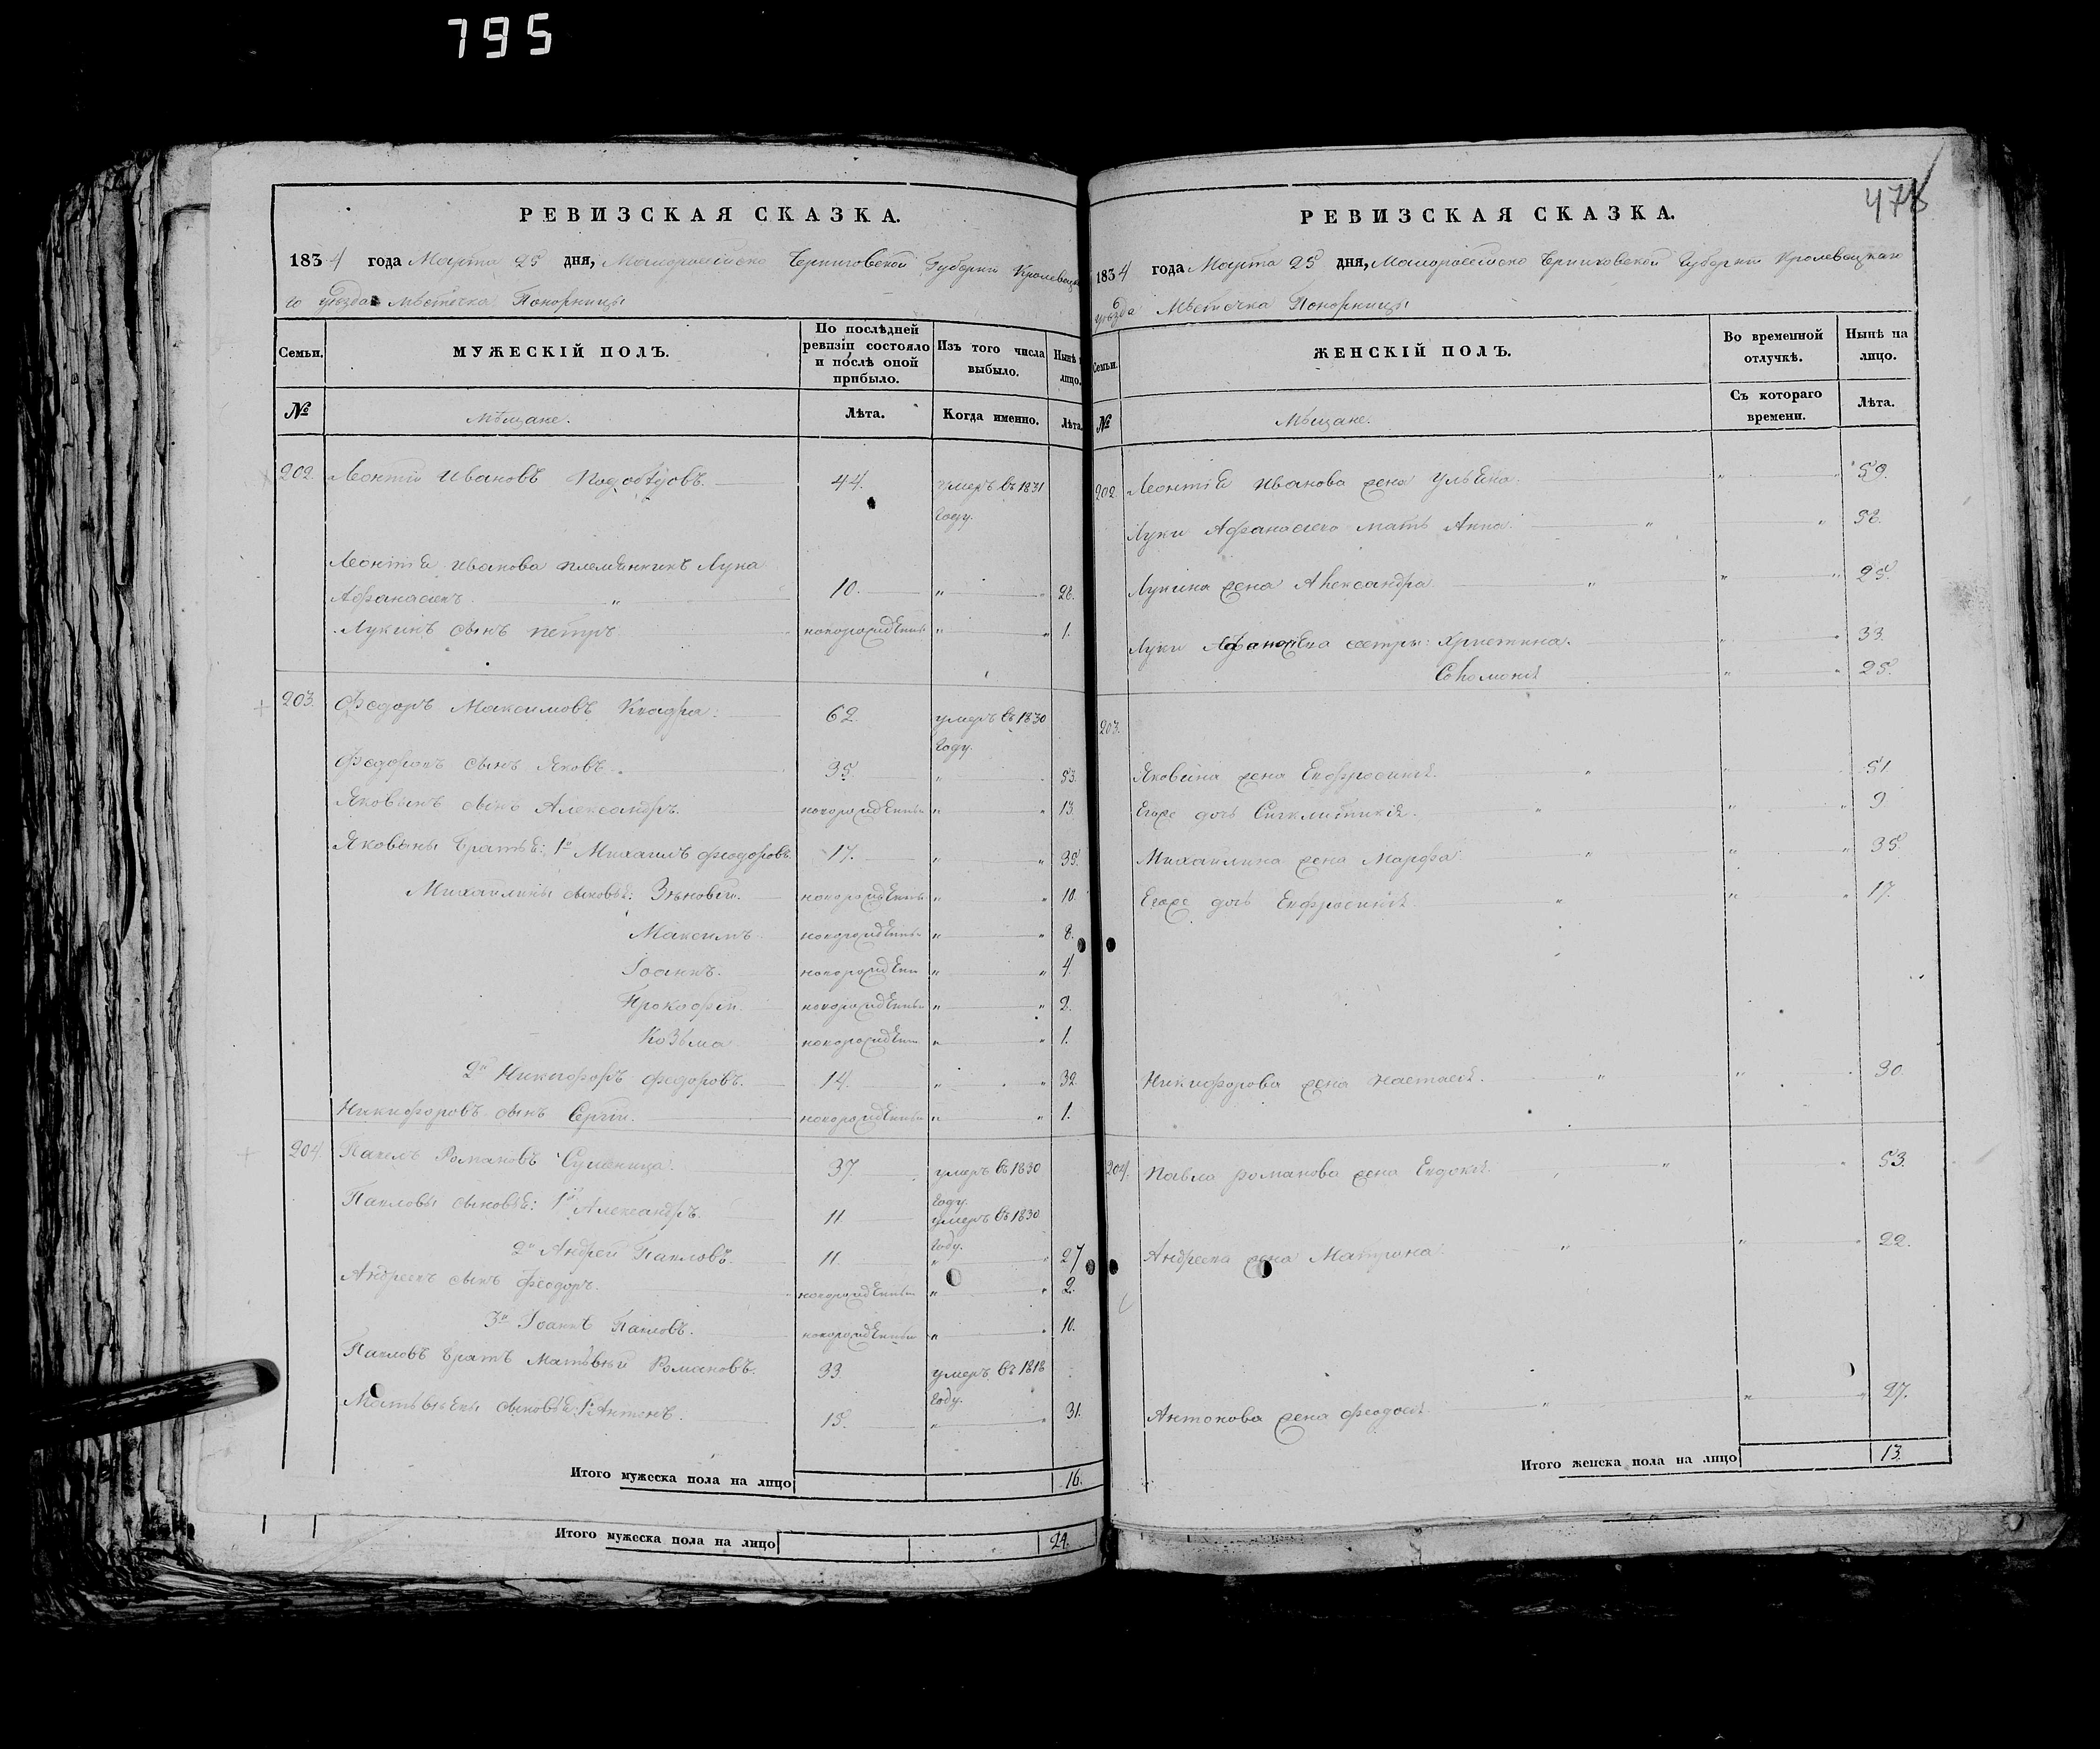 795
РЕВИЗСКАЯ СКАЗКА.
1834 года Марта 25 дня, Малороссійско Черниговской Губерніи Кролевецка
го уѣзда мѣстечка Понорницы
Семьи.
МУЖЕСКІЙ ПОЛЪ.
По послѣдней
ревизіи состояло
и послѣ оной
прибыло.
Изъ того числа
выбыло.
Нынѣ
лицо.
№
Мѣщане.
Лѣта.
Когда именно.
Лѣта.
202 Леонтій Ивановъ 44. умеръ въ 1831
году.
Леонтія Иванова племянникъ Лука
Афанасіевъ. " 10. " " 28.
Лукинъ сынъ Петръ новорожденный " " 1.
203. Федоръ Максимовъ 62. умеръ въ 1830
году.
Федоровъ сынъ Яковъ. 35. " 53.
Яковынъ сынъ Александръ. новорожденный " " 13.
Яковыны братья: 1й Михаилъ Феодоровъ. 17. " " 35.
Михаилины сыновья: Зѣновій. новорожденный " " 10.
Максимъ новорожденный " " 8.
Іоаннъ. новорожден " " 4
Прокофій. новорожденный " " 2.
Козьма новорожден " " 1.
2й Никифоръ Федоровъ. 14. " " 32.
Никифоровъ сынъ Сергій. новорожденный " " 1.
204. Павелъ Романовъ 37. умеръ въ 1830
году.
Павловы сыновья: 1й Александръ. 11 умеръ въ 1830
году.
2й Андрей Павловъ. 11. " " 27
Андреевъ сынъ Феодоръ. новорожденный " " 2.
3й Іоаннъ Павловъ. новорожденный " " 10.
Павловъ братъ Матвѣй Романовъ. 33. умеръ въ 1818
году.
Матвѣевы сыновья: 1й Антонъ. 15. " " 31.
Итого мужеска пола на лицо 16.
Итого мужеска пола на лицо 24.
РЕВИЗСКАЯ СКАЗКА.
1834 года Марта 25 дня, Малороссійско Черниговской Губерніи Кролевецкаго
уѣзда Мѣстечка Понорницы
Семьи.
ЖЕНСКІЙ ПОЛЪ.
Во временной
отлучкѣ.
Нынѣ на
лицо.
№
Мѣщане.
Съ котораго
времени.
Лѣта.
202 Леонтія Иванова жена Ульяна. " " 59.
Луки Афанасіева мать Анна. " " 58.
Лукина жена Александра " " " 25.
Луки Афанасіева сестры: Христина. " " 33.
Соломонія " " 25.
203.
Яковина жена Евфросинія. " " 51.
Егоже дочь Синклитикія. " " " 9
Михаилина жена Марфа " " " 35.
Егоже дочь Евфросинія " " " 17.
Никифорова жена Настасія. " " " 30.
204. Павла Романова жена Евдокія. " " 53.
Андреева жена Матрона. " " " 22.
Антонова жена Феодосія. " " " 27.
Итого женска пола на лицо 13.